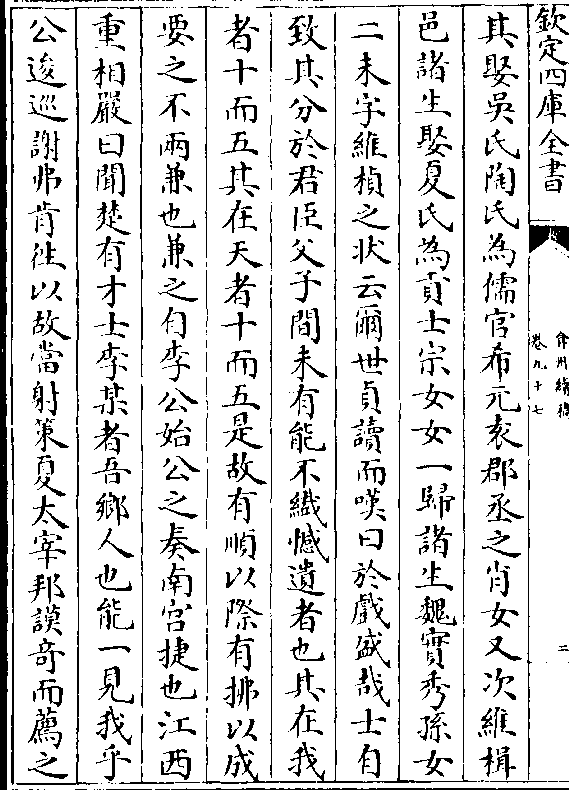 欽定四庫全書
弇州續稿
卷九十七
二
其娶吳氏陶氏為儒官希元表郡丞之肖女又次維楫
邑諸生娶夏氏為貢士宗女女一歸諸生魏實秀孫女
二未字維楨之状云爾世貞讀而嘆曰於戲盛哉士自
致其分於君臣父子間未有能不纎憾遺者也其在我
者十而五其在天者十而五是故有順以際有拂以成
要之不兩兼也兼之自李公始公之奏南宫捷也江西
重相嚴曰聞楚有才士李某者吾鄉人也能一見我乎
公逡巡謝弗肯徃以故當射策夏太宰邦謨竒而薦之